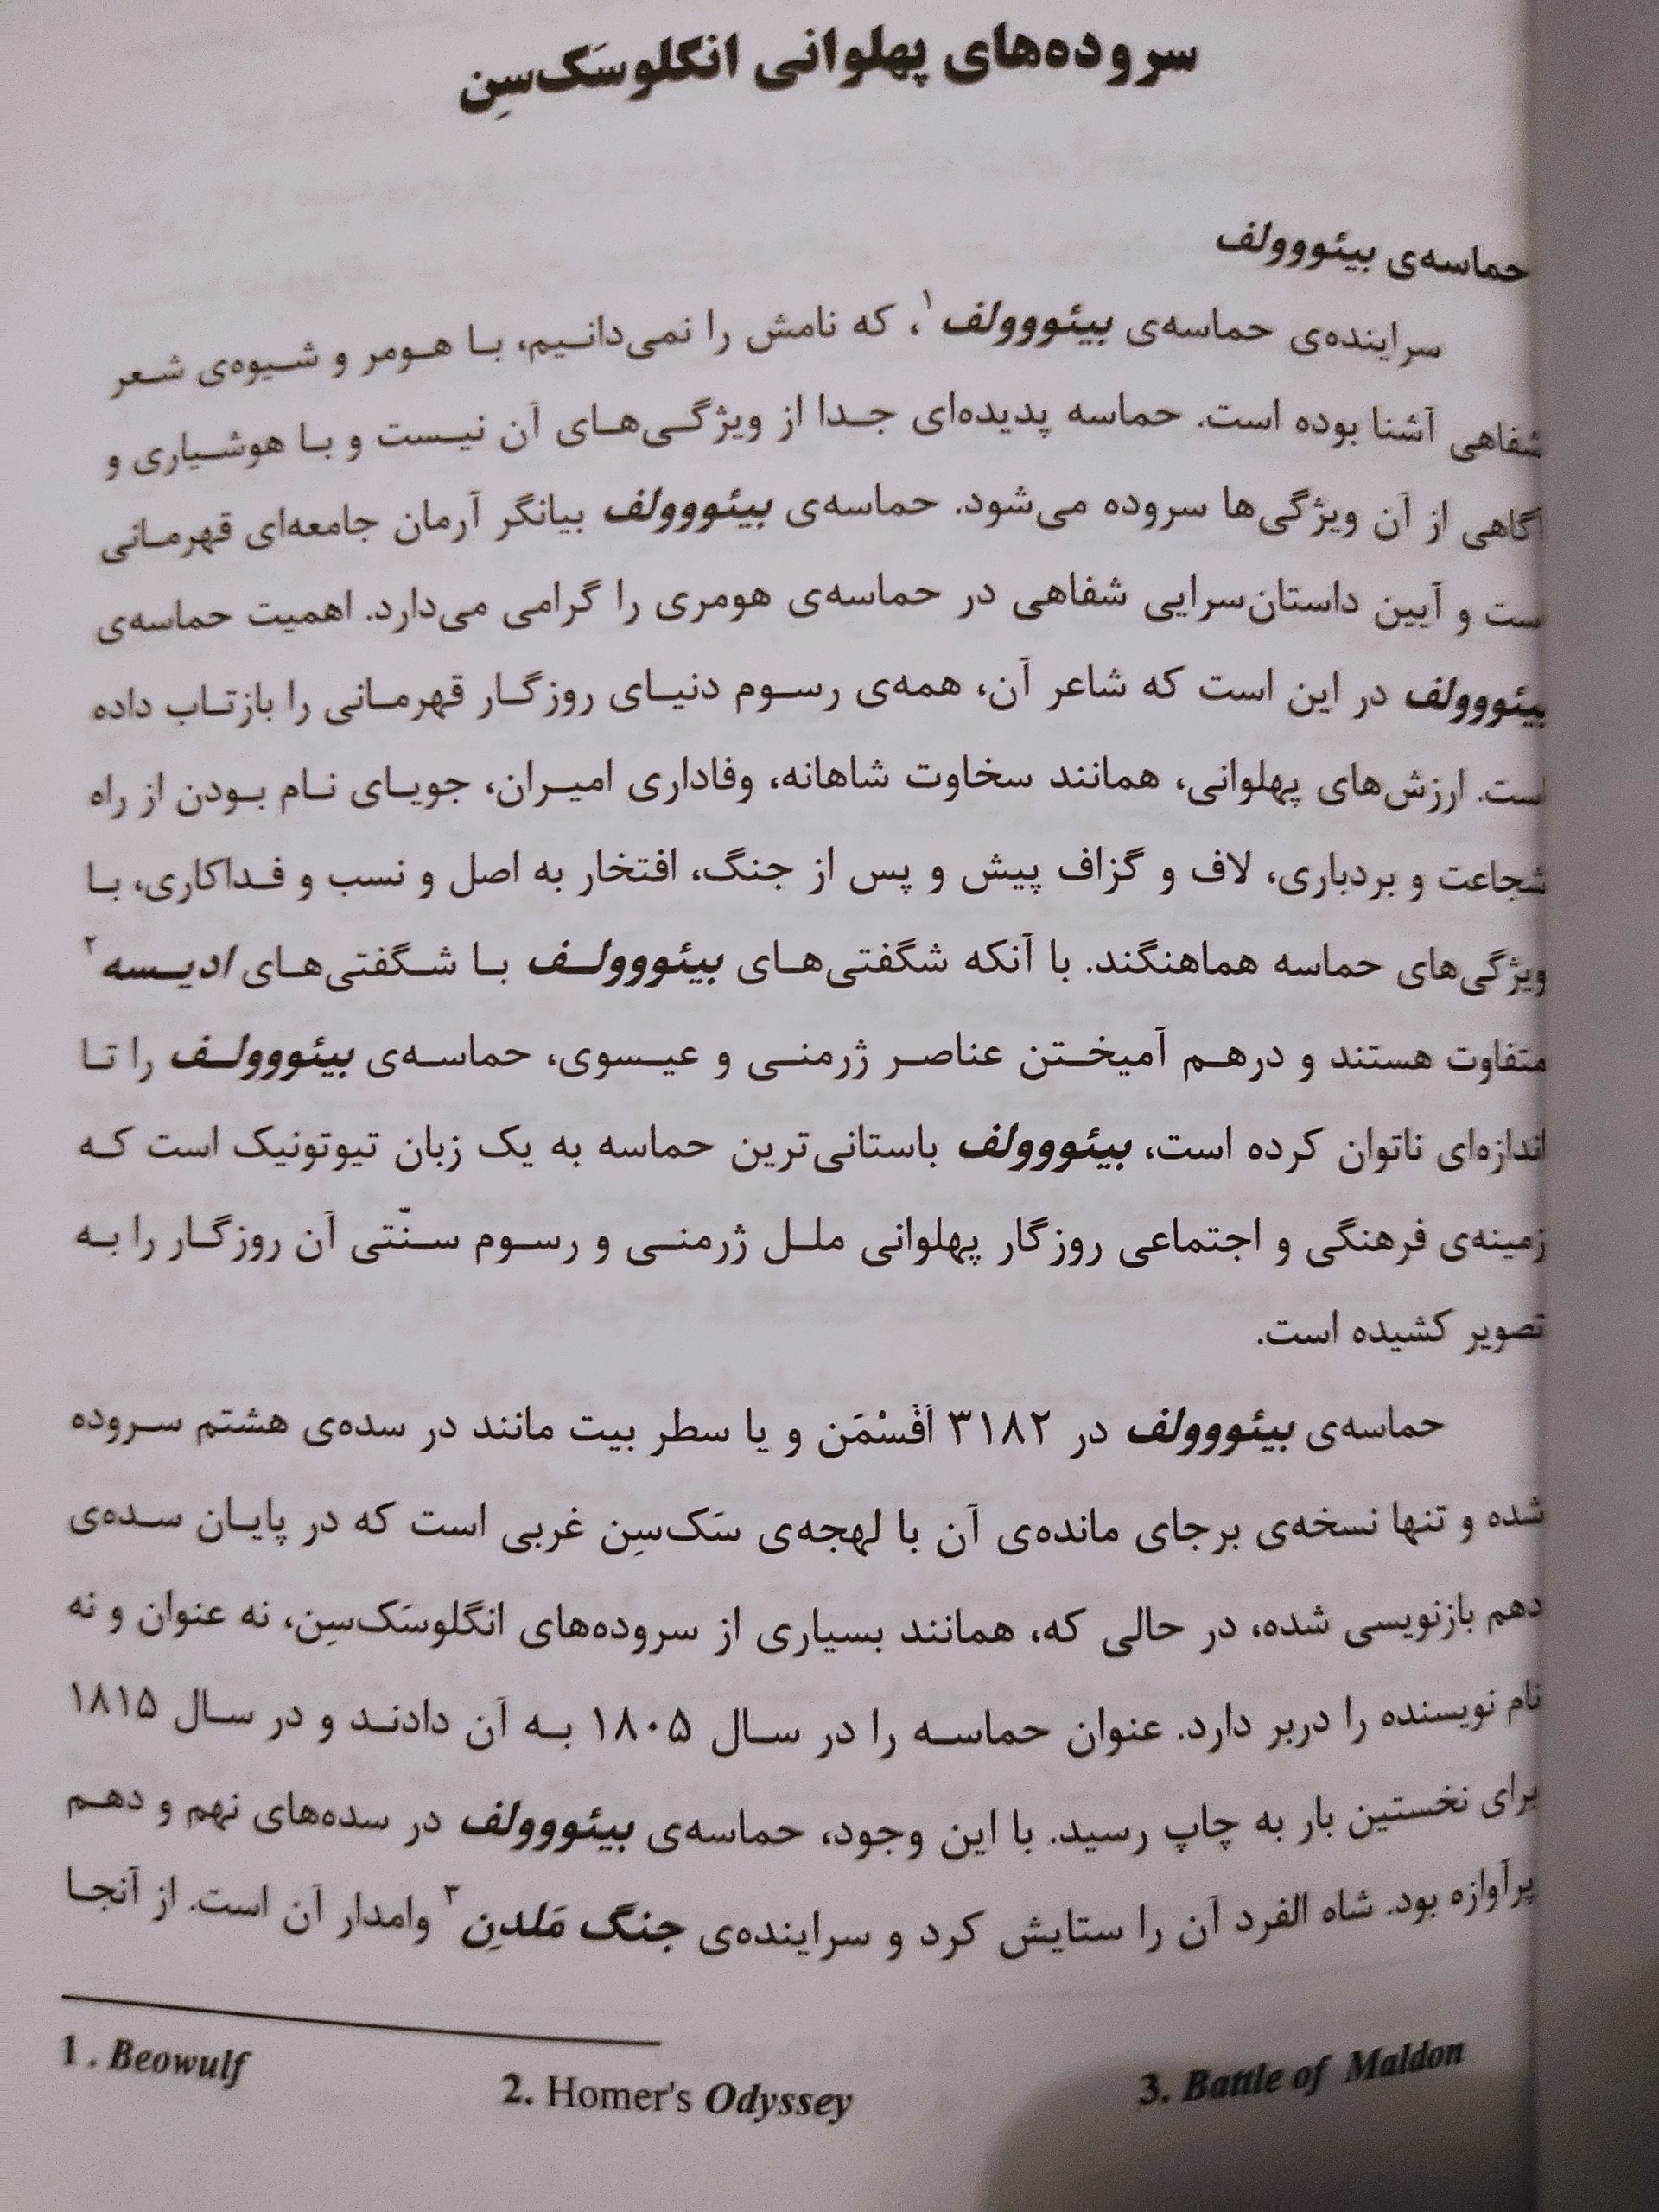 سروده‌های پهلوانی انگلوسَک‌سِن
حماسه‌ی بیئووولف
سراینده‌ی حماسه‌ی بیئووولف۱، که نامش را نمی‌دانیم، با هومر و شیوه‌ی شعر
شفاهی آشنا بوده است. حماسه پدیده‌ای جدا از ویژگی‌های آن نیست و با هوشیاری و
آگاهی از آن ویژگی‌ها سروده می‌شود. حماسه‌ی بیئووولف بیانگر آرمان جامعه‌ای قهرمانی
است و آیین داستان‌سرایی شفاهی در حماسه‌ی هومری را گرامی می‌دارد. اهمیت حماسه‌ی
بیئووولف در این است که شاعر آن، همه‌ی رسوم دنیای روزگار قهرمانی را بازتاب داده
است. ارزش‌های پهلوانی، همانند سخاوت شاهانه، وفاداری امیران، جویای نام بودن از راه
شجاعت و بردباری، لاف و گزاف پیش و پس از جنگ، افتخار به اصل و نسب و فداکاری، با
ویژگی‌های حماسه هماهنگند. با آنکه شگفتی‌های بیئووولف با شگفتی‌های ادیسه۲
متفاوت هستند و درهم آمیختن عناصر ژرمنی و عیسوی، حماسه‌ی بیئووولف را تا
اندازه‌ای ناتوان کرده است، بیئووولف باستانی‌ترین حماسه به یک زبان تیوتونیک است که
زمینه‌ی فرهنگی و اجتماعی روزگار پهلوانی ملل ژرمنی و رسوم سنّتی آن روزگار را به
تصویر کشیده است.
حماسه‌ی بیئووولف در ۳۱۸۲ اَفْسْمَن و یا سطر بیت مانند در سده‌ی هشتم سروده
شده و تنها نسخه‌ی برجای مانده‌ی آن با لهجه‌ی سَک‌سِن غربی است که در پایان سده‌ی
دهم بازنویسی شده، در حالی که، همانند بسیاری از سروده‌های انگلوسَک‌سِن، نه عنوان و نه
نام نویسنده را دربر دارد. عنوان حماسه را در سال ۱۸۰۵ به آن دادند و در سال ۱۸۱۵
برای نخستین بار به چاپ رسید. با این وجود، حماسه‌ی بیئووولف در سده‌های نهم و دهم
پرآوازه بود. شاه الفرد آن را ستایش کرد و سراینده‌ی جنگ مَلدِن۳ وامدار آن است. از آنجا
1. Beowulf 2. Homer's Odyssey 3. Battle of Maldon